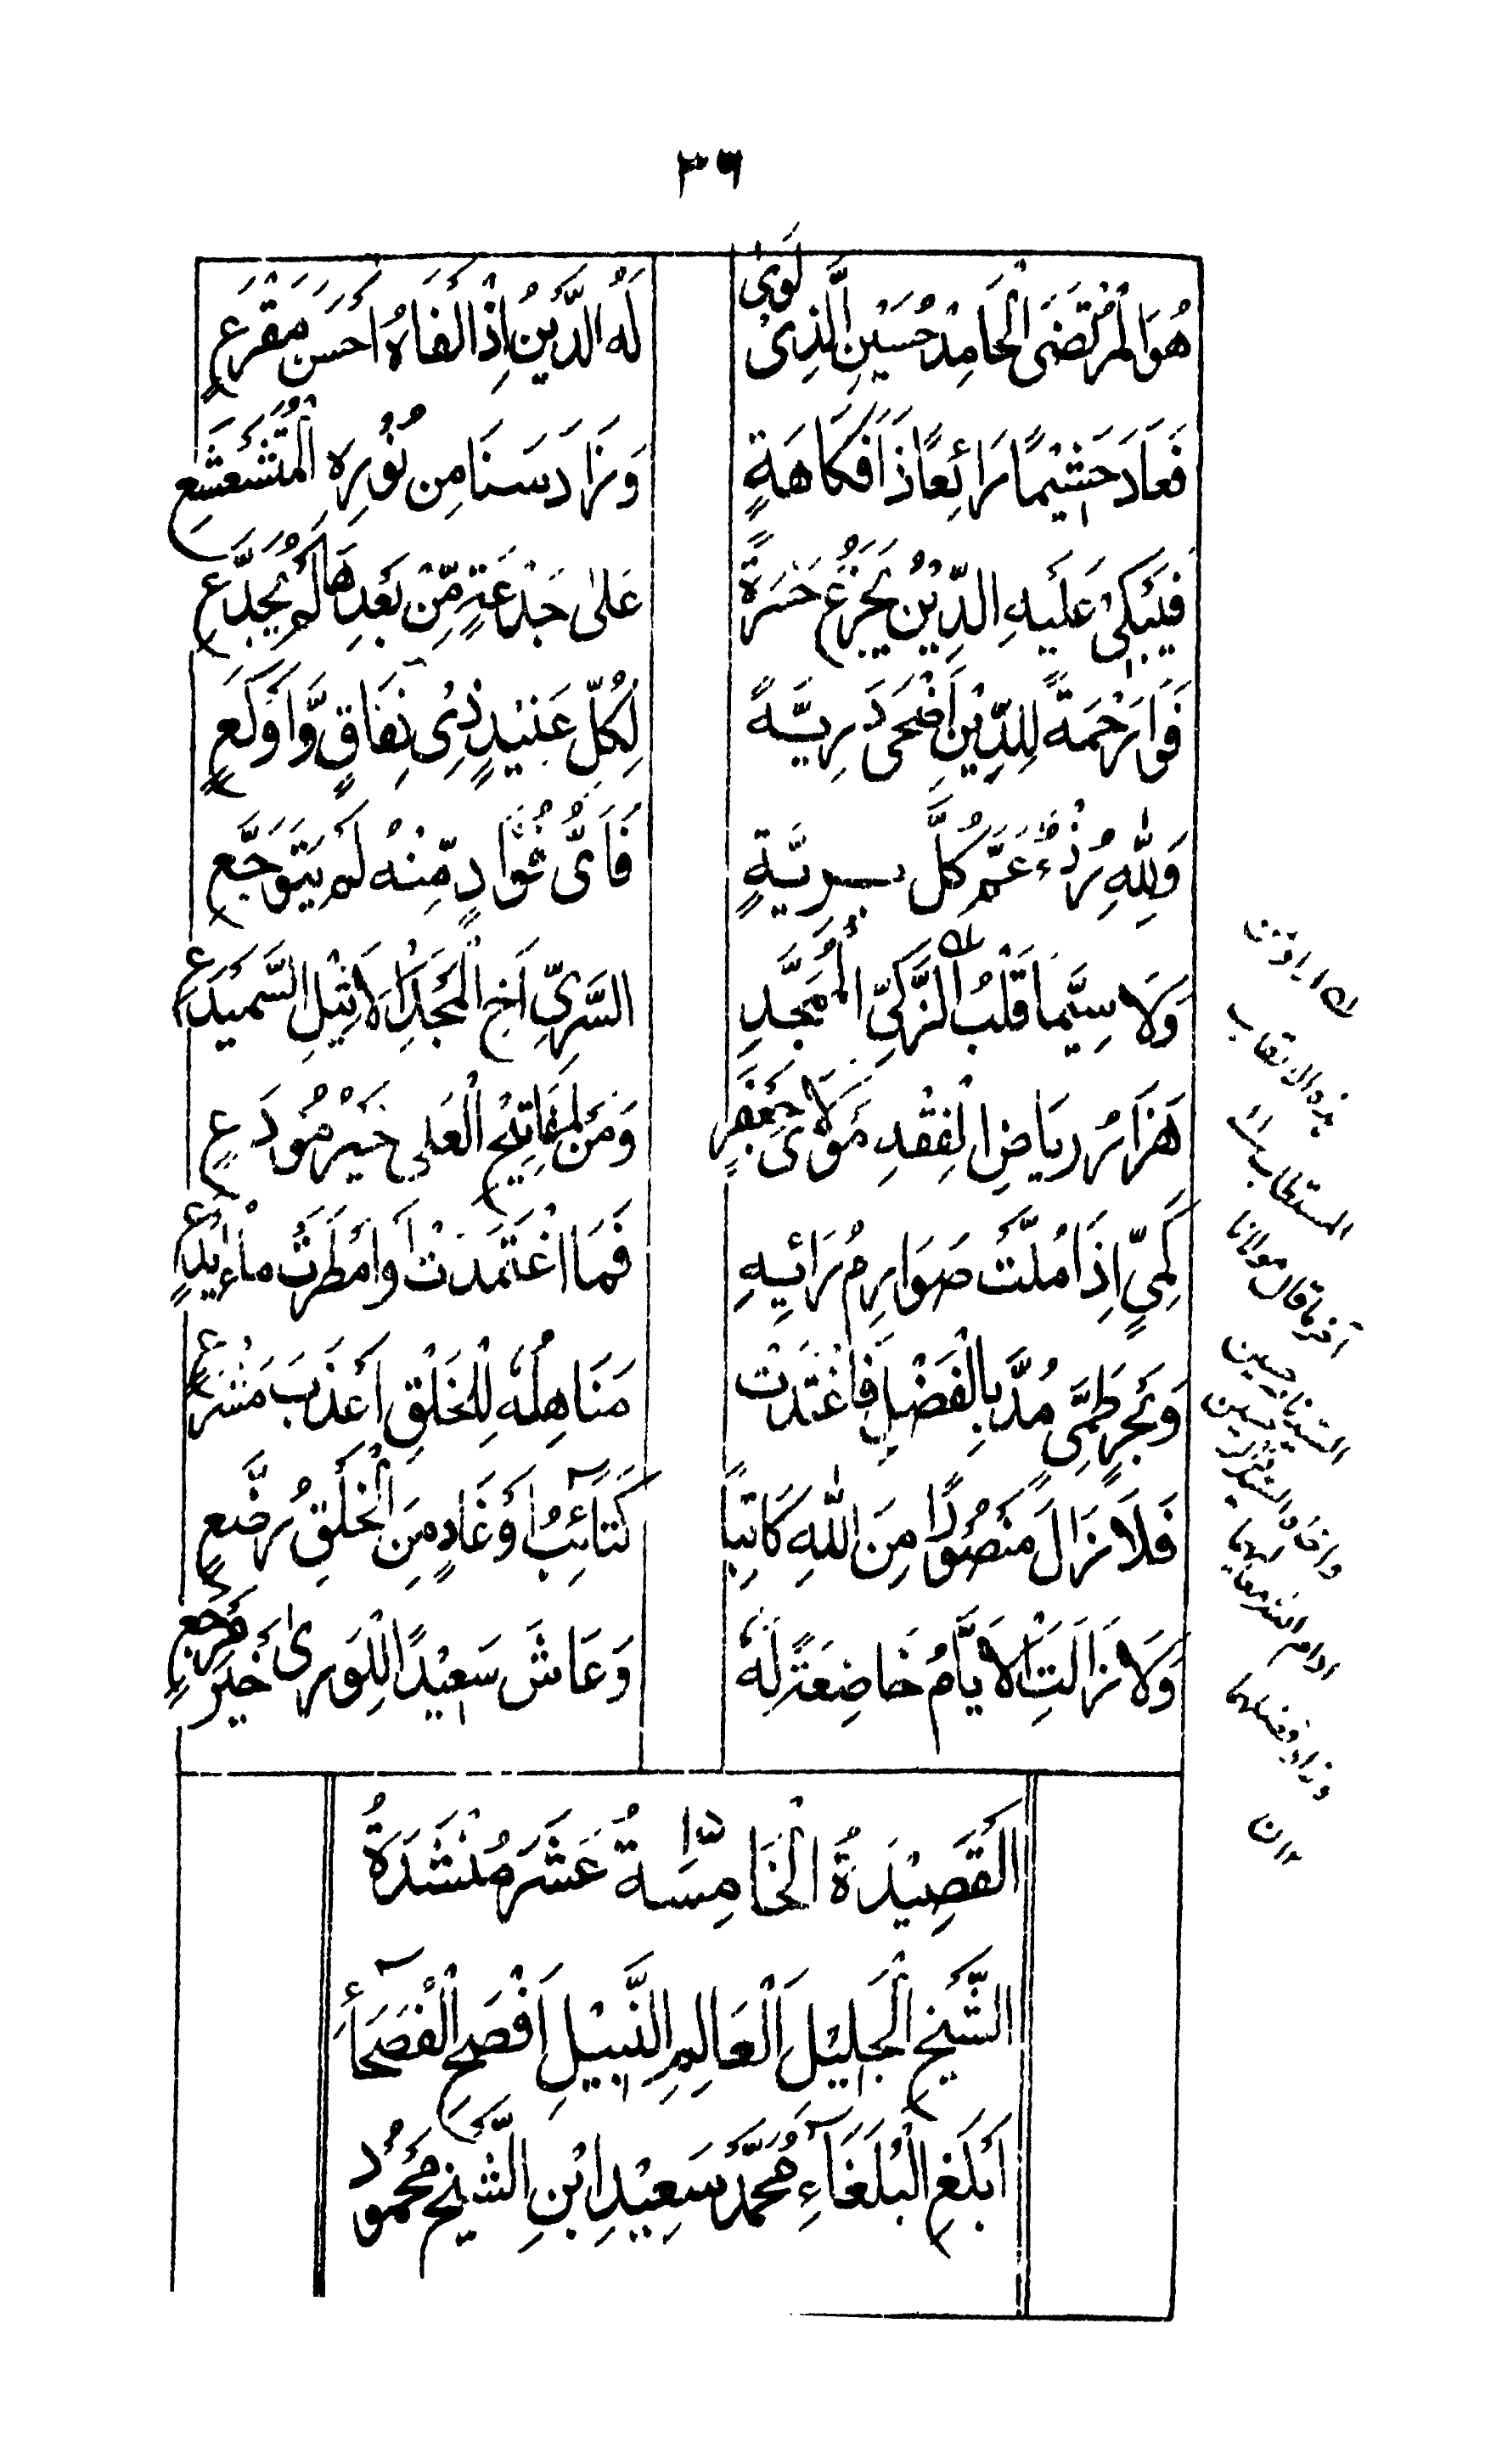 ٣٦
هُوَ الْمُرْتَضَى الْحَامِدْ حُسَيْنِ الَّذِيْ لَوىٰ لَهُ الدِّيْنُ اِذْ اَلْفَاهُ اَحْسَنَ مَفْزَعٍ
فَعَادَ حَشِيْمًا رَائِعًا ذَا فَكَاهَةٍ وَزَادَ سَنَا مِن نُوْرِهِ الْمُتَشَعْشِعِ
فَيَبْكِيْ عَلَيْهِ الدِّيْنُ يَجْزَعُ حَسْرَةً عَلىٰ جَدْعَةٍ مِّنْ بَعْدِهَا لَمْ يُجَدَّعِ
فَوَا رَحْمَةً لِلدِّيْنِ اَضْحَى دَرِيَّةً لِكُلِّ عَنِيْدٍ ذِيْ نِفَاقٍ وَّاَوْلَعٍ
وَلِلّٰهِ رُزْءٌ عَمَّ كُلَّ بَرِيَّةٍ فَاَيُّ فُؤَادٍ مِّنْهُ لَمْ يَتَوَجَّعِ
وَلَا سِيَّمَا قَلْبُ الزَّكِيِّ الْمُمَجَّدِ السَّرِيِّ اَخِ الْمَجْدِ الْاَثِيْلِ السَّمَيْدَعِ
هَزَارُ رِيَاضِ الْفِقْهِ مَوْلَايَ جَعْفَرٍ وَمَنْ لِمَفَاتِيْحِ الْعَلى خَيْرُ مُودَعٍ
كَمِيٍّ اِذَا سُلَّتْ صَوَارِمُ رَائِيهِ فَمَا اغْتَمَدَتْ اَوْ اَمْطَرَتْ مَاءَ يُلْدَعٍ
وَبَحْرٍ طَمِيٍّ مُدَّ بِالْفَضْلِ فَاغْتَدَتْ مَنَاهِلُهُ لِلْخَلْقِ اَعْذَبَ مَشْرَعٍ
فَلَا زَالَ مَنْصُوْرًا مِنَ اللّٰهِ كَاتِبًا كَتَآئِبُ اَوْغَادٍ مِنَ الْخَلْقِ رُضَّعٍ
وَلَا زَالَتِ الْاَيَّامُ خَاضِعَةً لَّهُ وَعَاشَ سَعِيْدًا لِلْوَرىٰ خَيْرَ مَرْجِعٍ
هذه الالقاب
المستطاب
مولانا
وزاد فضلهما
القَصِيْدَةُ الْخَامِسَةُ عَشَرَ مُنْشَدَةُ
الشَّيْخِ الْجَلِيْلِ الْعَالِمِ النَّبِيْلِ اَفْصَحِ الْفُصَحَآءِ
اَبْلَغِ الْبُلَغَآءِ مُحَمَّدْ سَعِيْدِ ابْنِ الشَّيْخِ مَحْمُوْدْ